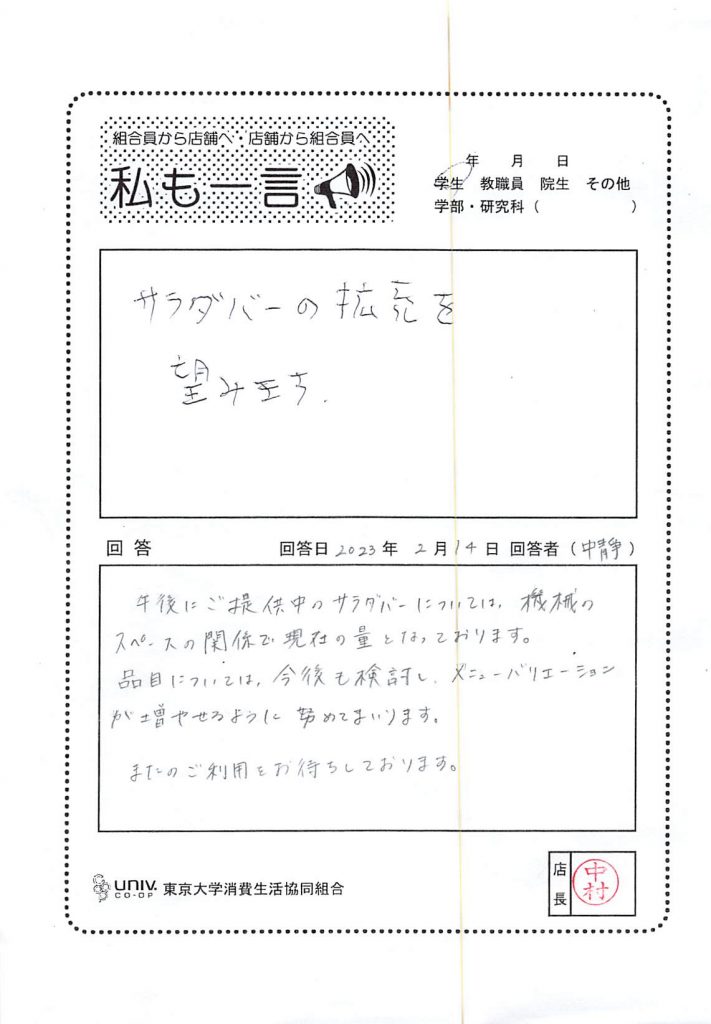 組合員から店舗へ・店舗から組合員へ
私も一言
年 月 日
学生 教職員 院生 その他
学部・研究科（ ）
サラダバーの拡充を
望みます.
回答 回答日 2023年 2月14日 回答者（中靜）
午後にご提供中のサラダバーについては、機械の
スペースの関係で現在の量となっております。
品目については、今後も検討し、メニューバリエーション
が増やせるように努めてまいります。
またのご利用をお待ちしております。
UNIV.
CO-OP
東京大学消費生活協同組合
店長
中村